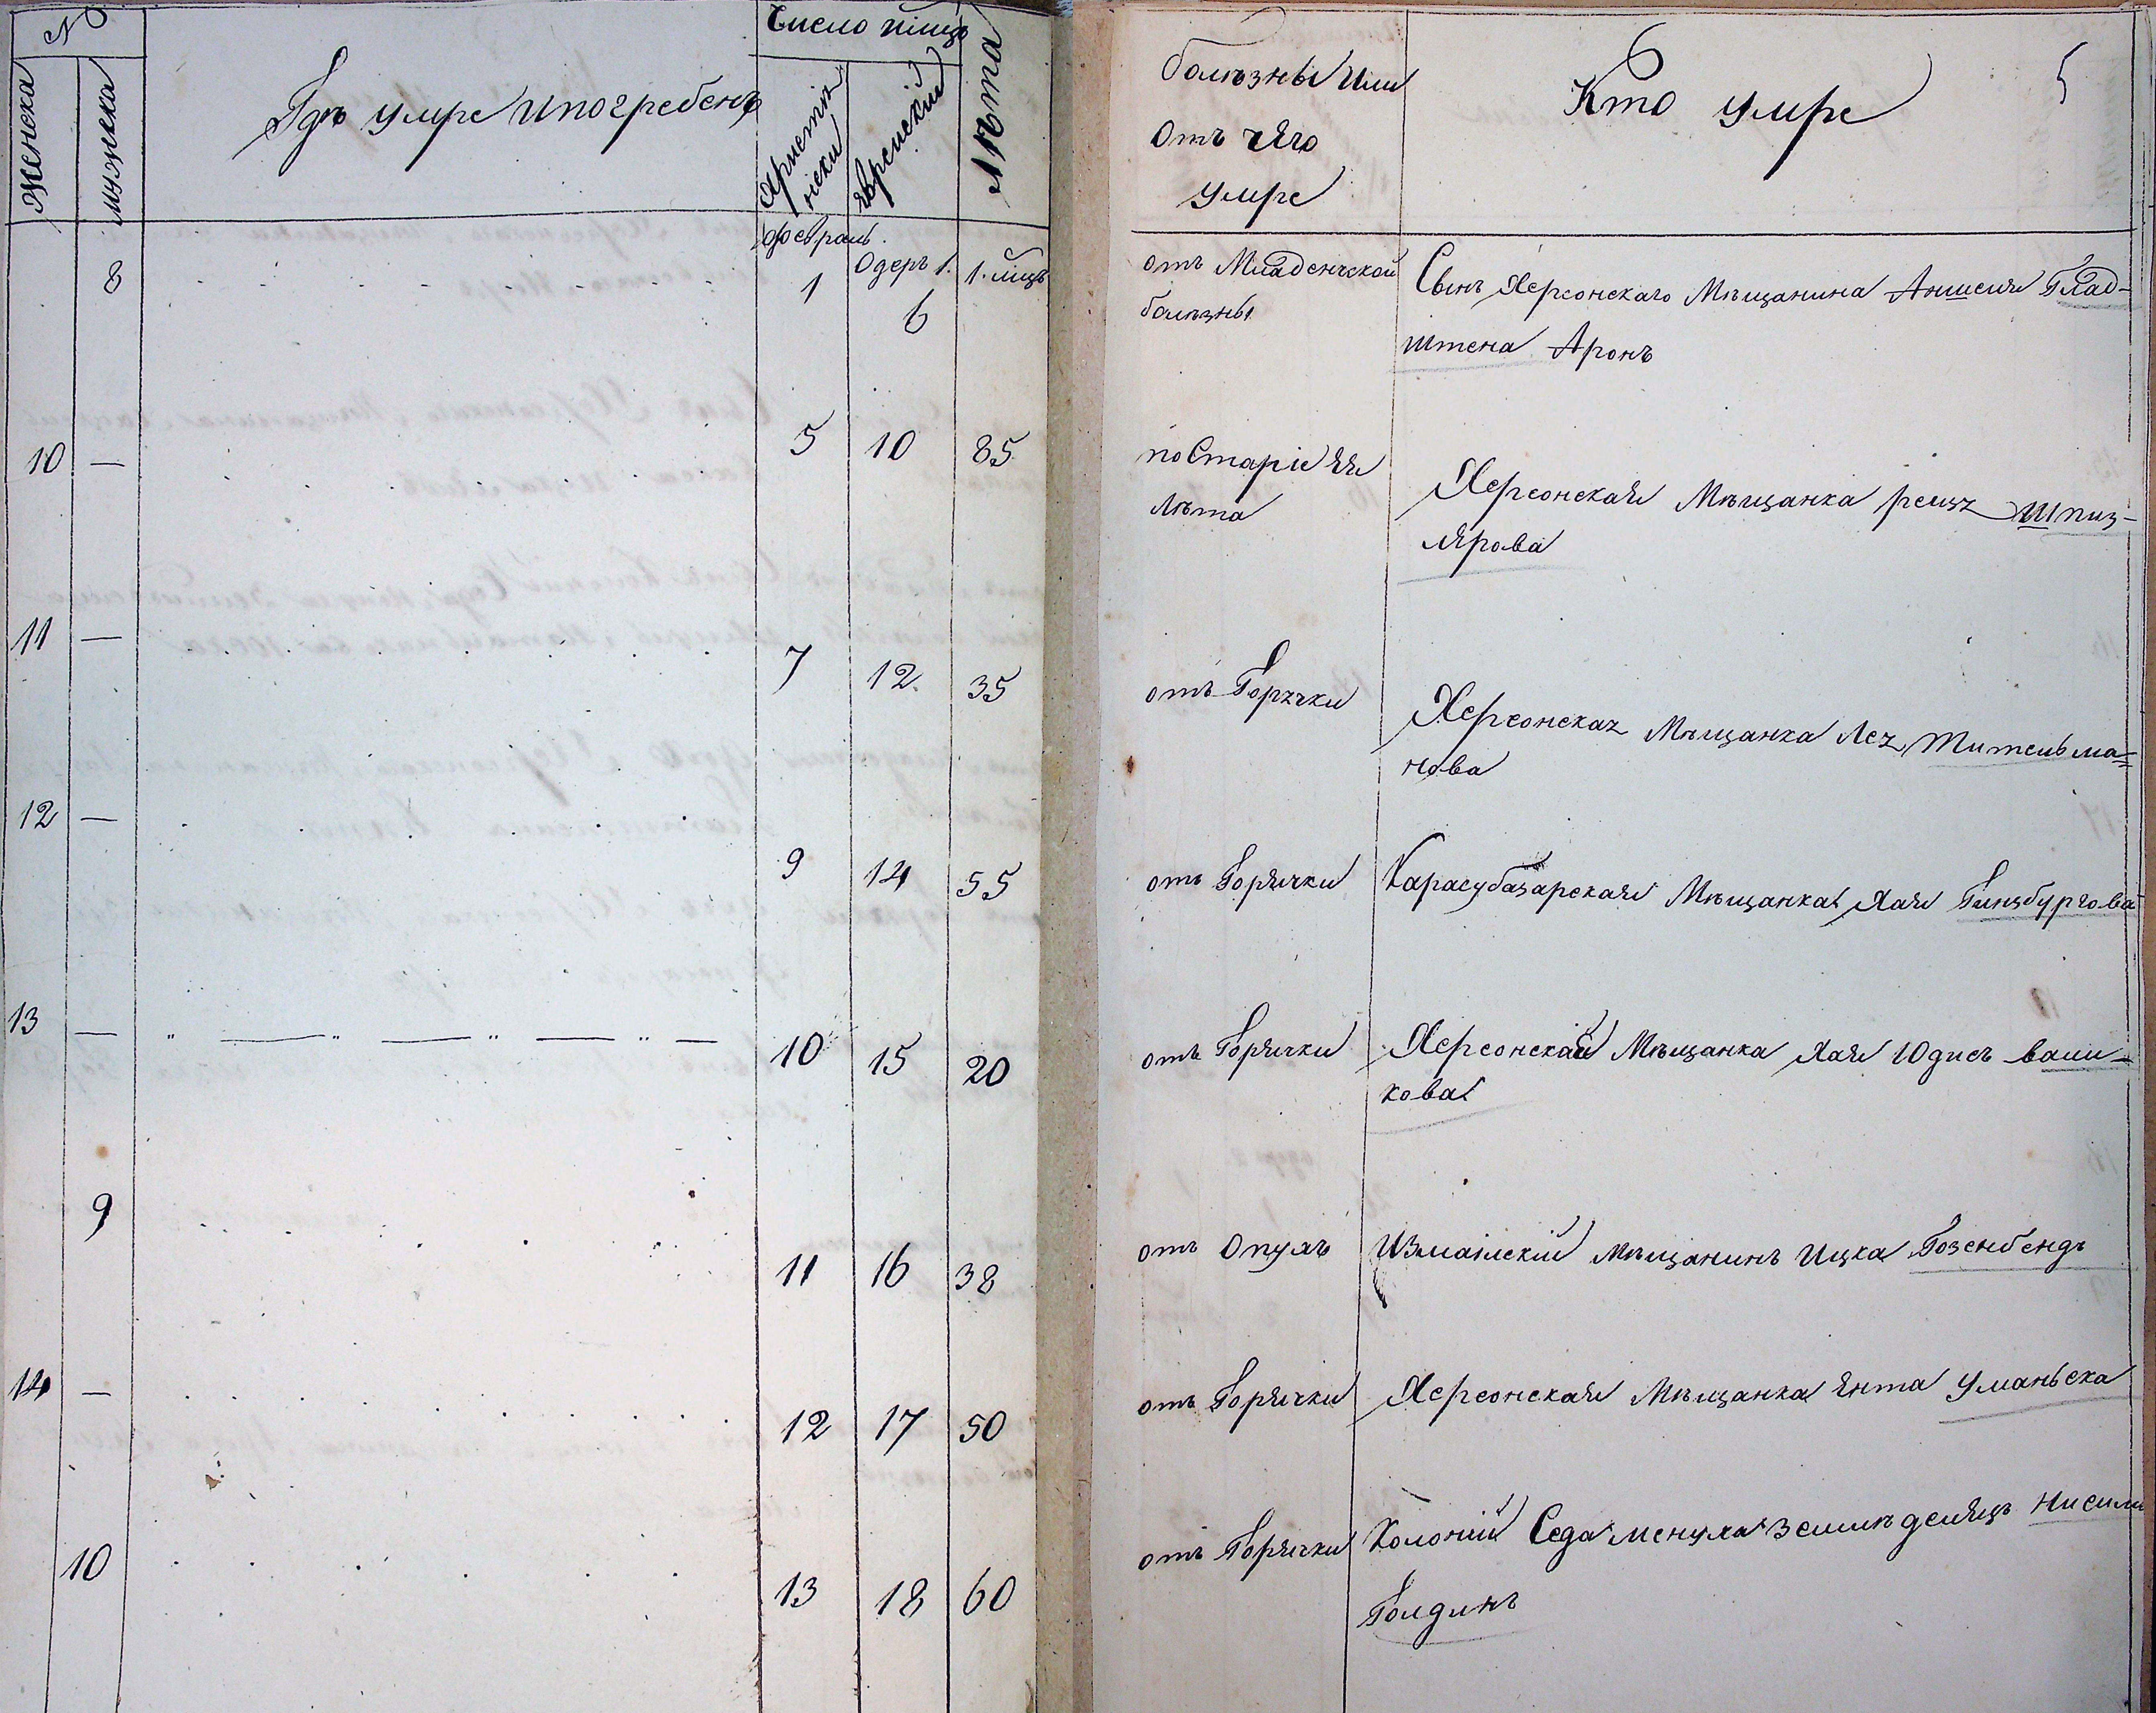 №
Женска
мужеска
Гдѣ умре и погребенъ
Число мѣсяцъ
Християнски
Еврейский
Лѣта
болѣзны или
отъ чяго
умре
Кто умре
5
8
Февраль.
1
Одеръ 1.
6
1. мѣсць
отъ Младенческой
болѣзны
Сынъ Херсонскаго Мѣщанина Аншеля Глад-
штена Аронъ
10 —
5
10
85
по Старіе ея
Лѣта
Херсонская Мѣщанка реизя Шпиз-
лярова
11 —
7
12
35
отъ Горячки
Херсонская Мѣщанка Лея Тительма=
нова
12 —
9
14
55
отъ Горячки
Карасубазарская Мѣщанка Хая Гинзбургова
13 —
10
15
20
отъ Горячки
Херсонской Мѣщанка Хая Юдисъ ваши-
кова
9
11
16
38
отъ Опухъ
Измаилскій мѣщанинъ Ицка Гозенбендъ
14 —
12
17
50
отъ Горячки
Херсонская Мѣщанка Янта Уманьска
10
13
18
60
отъ Горячки
Колоній Седаменуха землѣделяцъ Нисилъ
Голдинъ